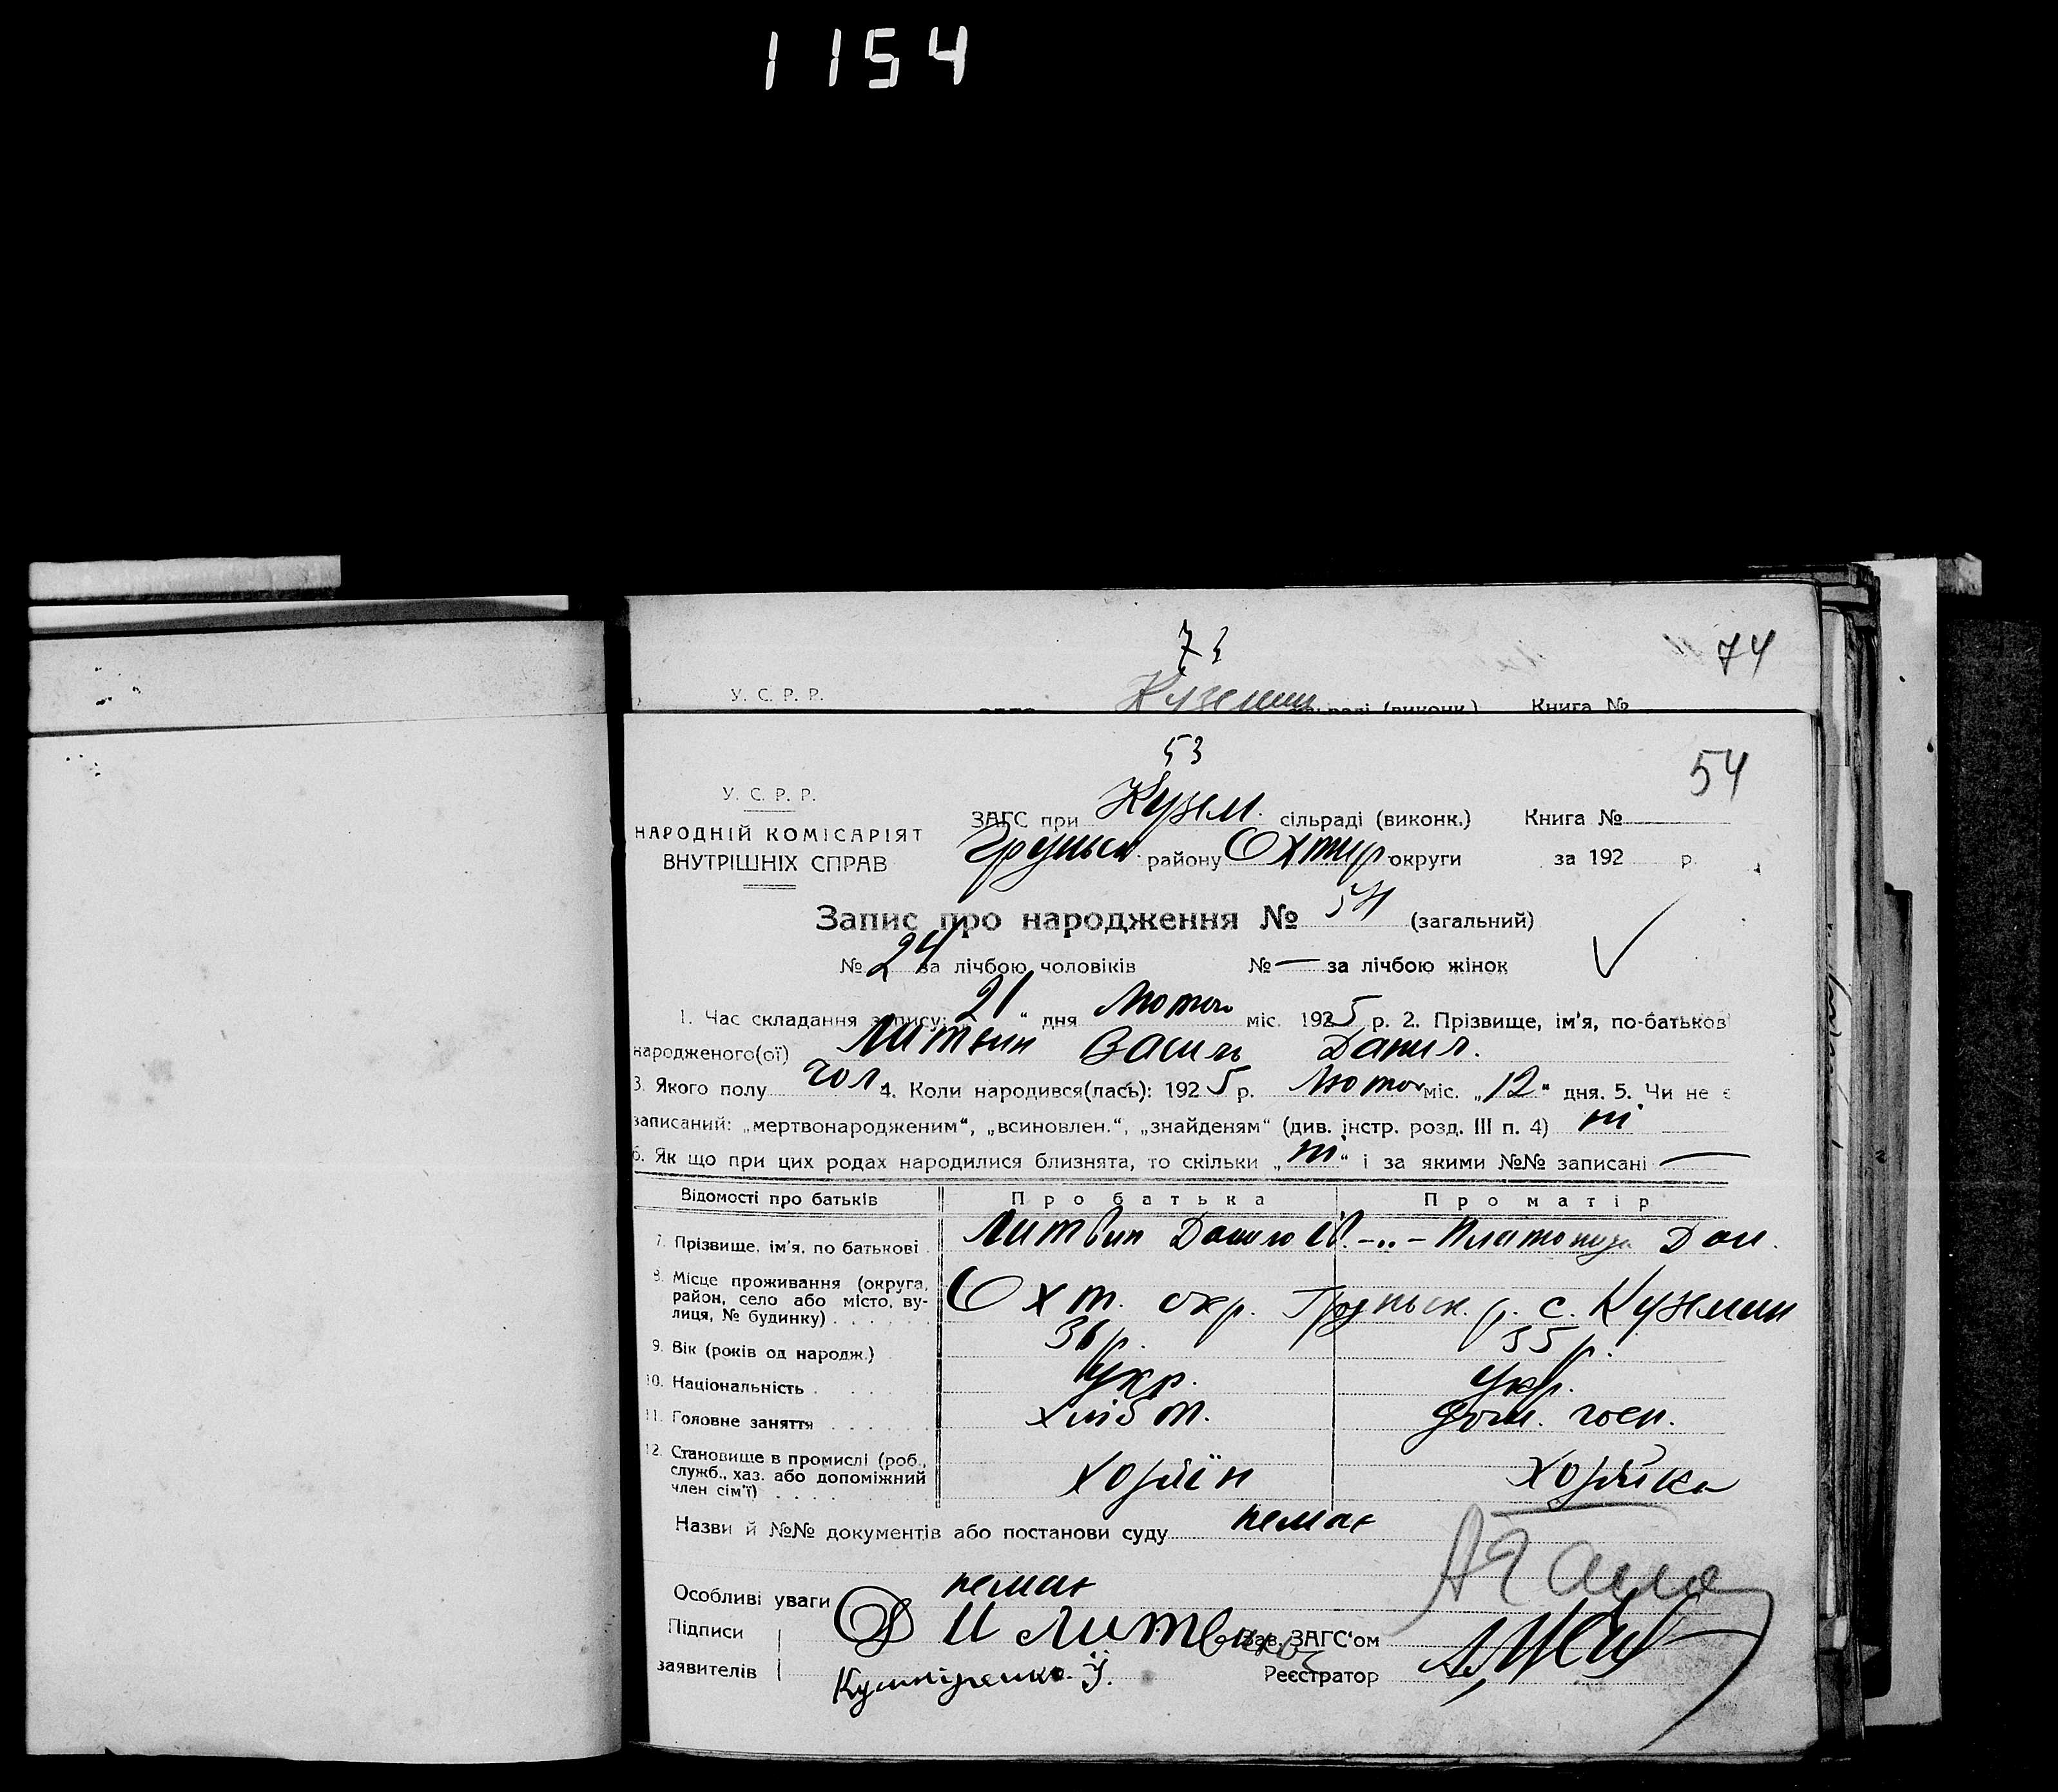 1154
73 74
У. С. Р. Р. Куземин раді (виконк.) Книга №
53 54
У. С. Р. Р.
НАРОДНІЙ КОМІСАРІЯТ
ВНУТРІШНІХ СПРАВ
ЗАГС при Кузем. сільраді (виконк.) Книга №
Груньск. району Охтир. округи за 192 р.
Запис про народження № 54 (загальний)
№ 24 за лічбою чоловіків № — за лічбою жінок
1. Час складання запису: „21“ дня Лютого міс. 1925 р. 2. Прізвище, ім'я, по-батькові
народженого(ої) Литвин Василь Данил.
3. Якого полу чол. 4. Коли народився(лась): 1925 р. Лютого міс. „12“ дня. 5. Чи не є
записаний: „мертвонародженим“, „всиновлен.“, „знайденям“ (див. інстр. розд. III п. 4) ні
6. Як що при цих родах народилися близнята, то скільки „ні“ і за якими №№ записані —
Відомості про батьків Про батька Про матір
7. Прізвище, ім'я, по батькові Литвин Данило Ів. -„- Платонида Дан.
8. Місце проживання (округа,
район, село або місто, ву-
лиця, № будинку) Охт. окр. Груньск. р. с. Куземин
9. Вік (років од народж.) 36 р. 35 р.
10. Національність Укр. Укр.
11. Головне заняття хліб т. дом. госп.
12. Становище в промислі (роб.,
служб., хаз. або допоміжний
член сім'ї) хозяїн хозяйка
Назви й №№ документів або постанови суду немає
Особливі уваги немає
Підписи
заявителів
Д И Литвин Зав. ЗАГС'ом
Кушніренко У. Реєстратор